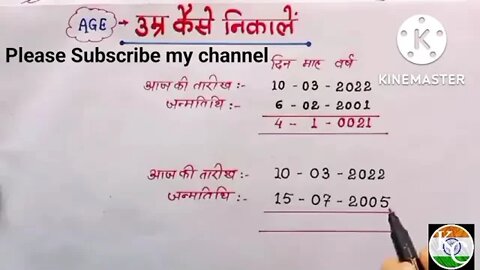 AGE → उम्र कैसे निकालें
Please Subscribe my channel
KINEMASTER
दिन माह वर्ष
आज की तारीख :- 10 - 03 - 2022
जन्मतिथि :- 6 - 02 - 2001
4 - 1 - 0021
आज की तारीख :- 10 - 03 - 2022
जन्मतिथि :- 15 - 07 - 2005